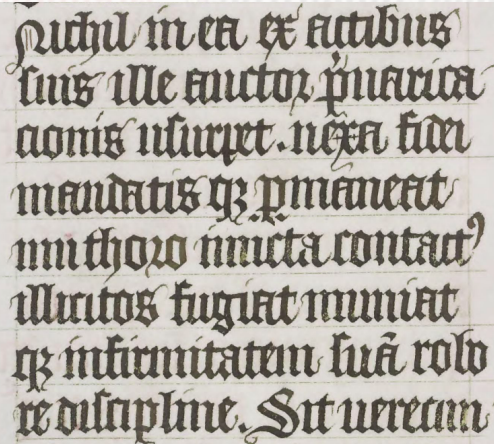 Nichil in ea ex actibus
suis ille auctor p̄uarica
cionis usurpet. nexa fidei
mandatis qꝫ ꝑmaneat
uni thoro iuncta contactꝰ
illicitos fugiat muniat
qꝫ infirmitatem suā robo
re discipline. Sit uerecun